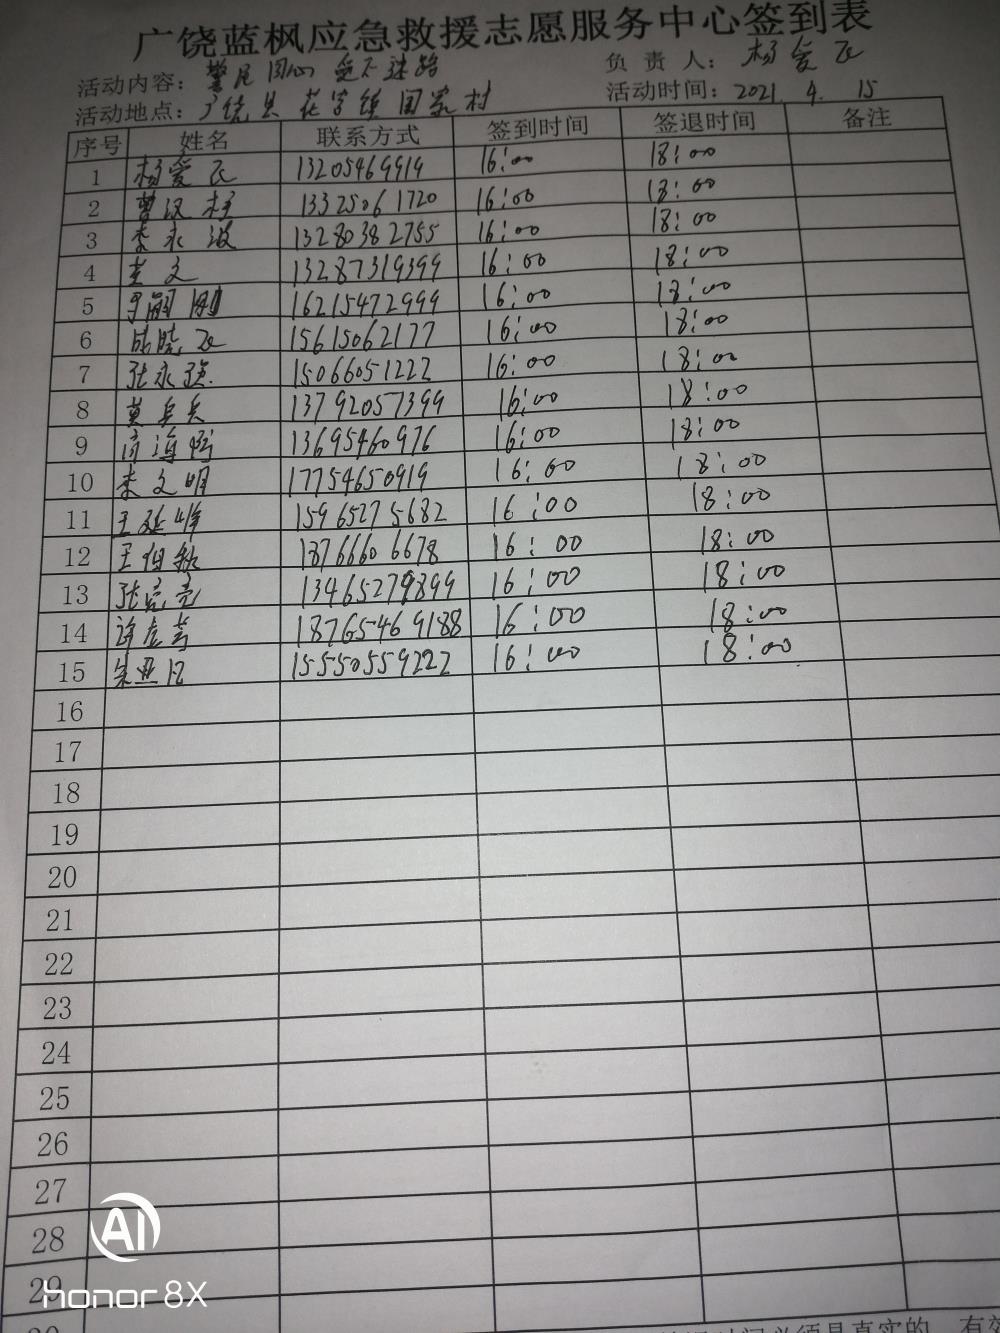 广饶蓝枫应急救援志愿服务中心签到表
活动内容：警民同心 爱不迷路 负 责 人：杨爱民
活动地点：广饶县 花官镇 周家村 活动时间：2021. 4. 15
序号 姓名 联系方式 签到时间 签退时间 备注
1 杨爱民 13205469919 16:00 18:00
2 13325061720 16:00 18:00
3 李永波 13280382755 16:00 18:00
4 13287319399 16:00 18:00
5 16215472999 16:00 18:00
6 15615062177 16:00 18:00
7 张永强 15066051222 16:00 18:00
8 13792057399 16:00 18:00
9 13695460976 16:00 18:00
10 李文明 17754650919 16:00 18:00
11 王延峰 15965275682 16:00 18:00
12 18766606678 16:00 18:00
13 张亮亮 13465279899 16:00 18:00
14 18765469188 16:00 18:00
15 朱亚凡 15550559222 16:00 18:00
16
17
18
19
20
21
22
23
24
25
26
27
28
29
AI
honor 8X